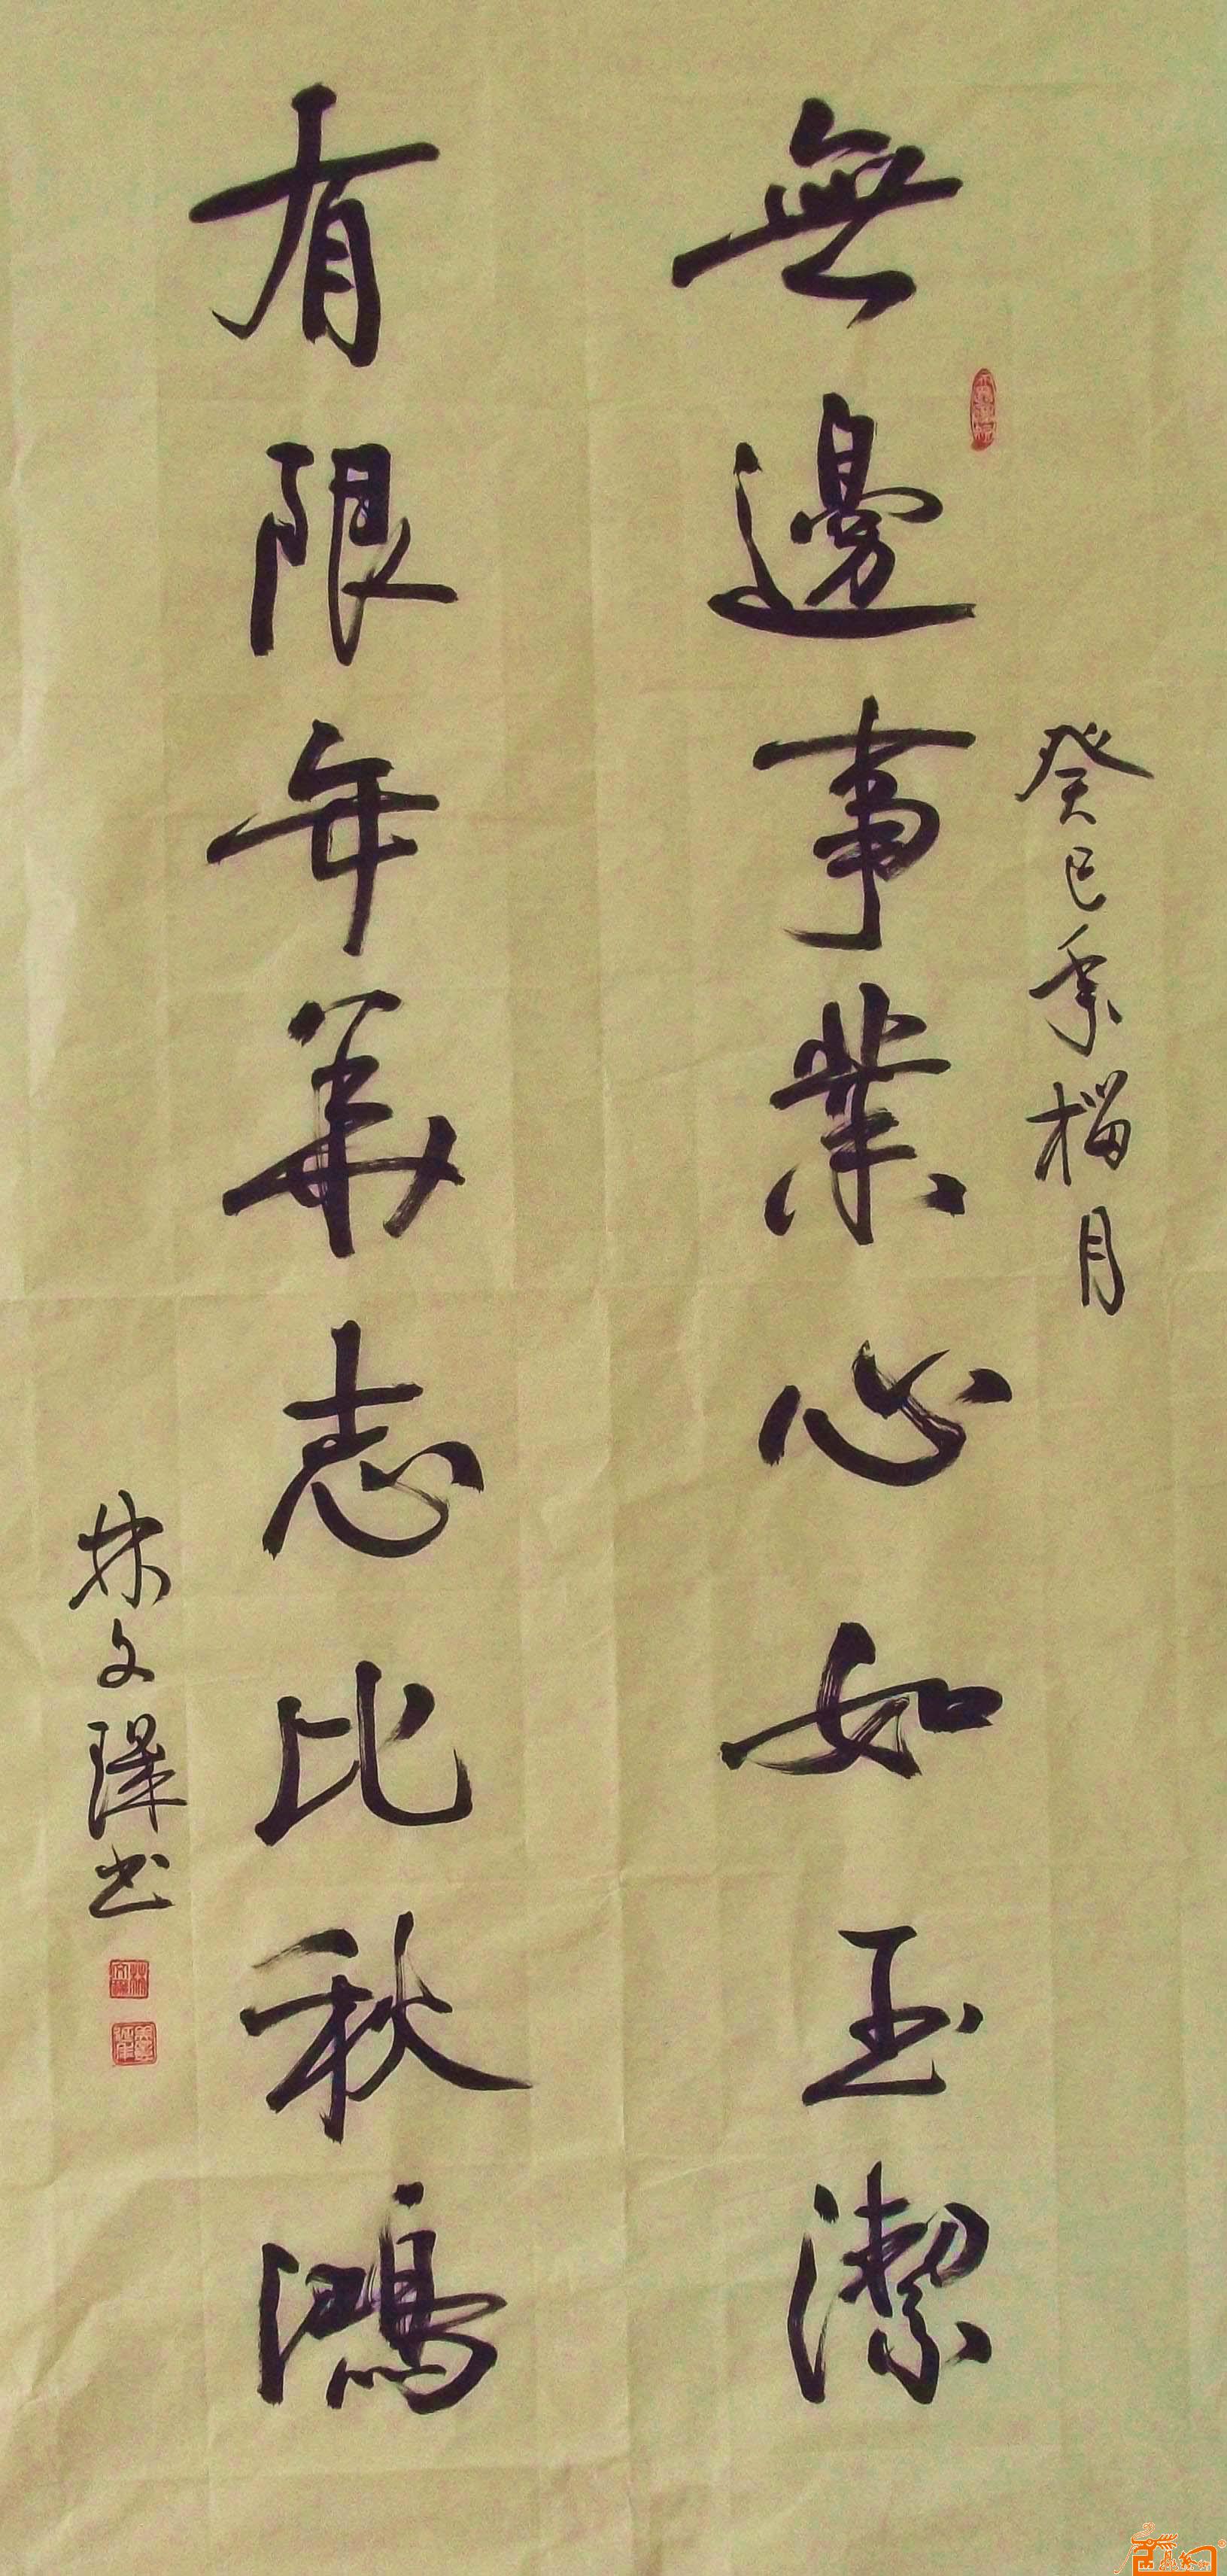 癸巳年榴月
無邊事業心如玉潔
有限年華志比秋鴻
林文璍书